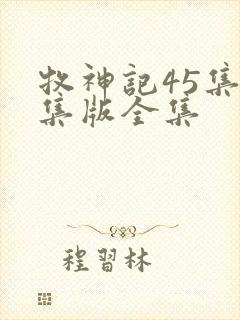 牧神記45集
集版全集
程習林